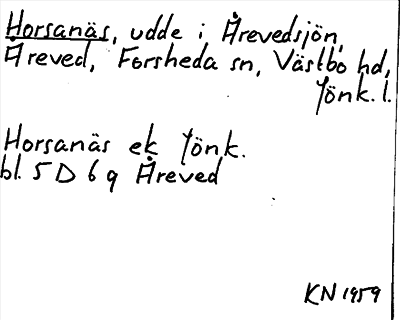 Horsanäs, udde i Årevedsjön,
Åreved, Forsheda sn, Västbo hd,
Jönk. l.
Horsanäs ek Jönk.
bl. 5 D 6 g Åreved
KN 1959